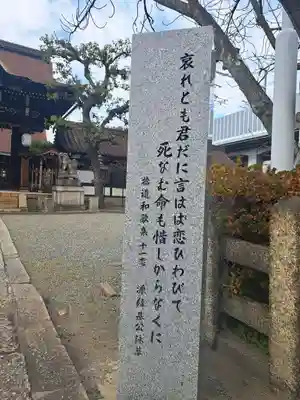 哀れとも君だに言はば恋ひわびて
死なむ命も惜しからなくに
拾遺和歌集 十一巻 源経基公詠草